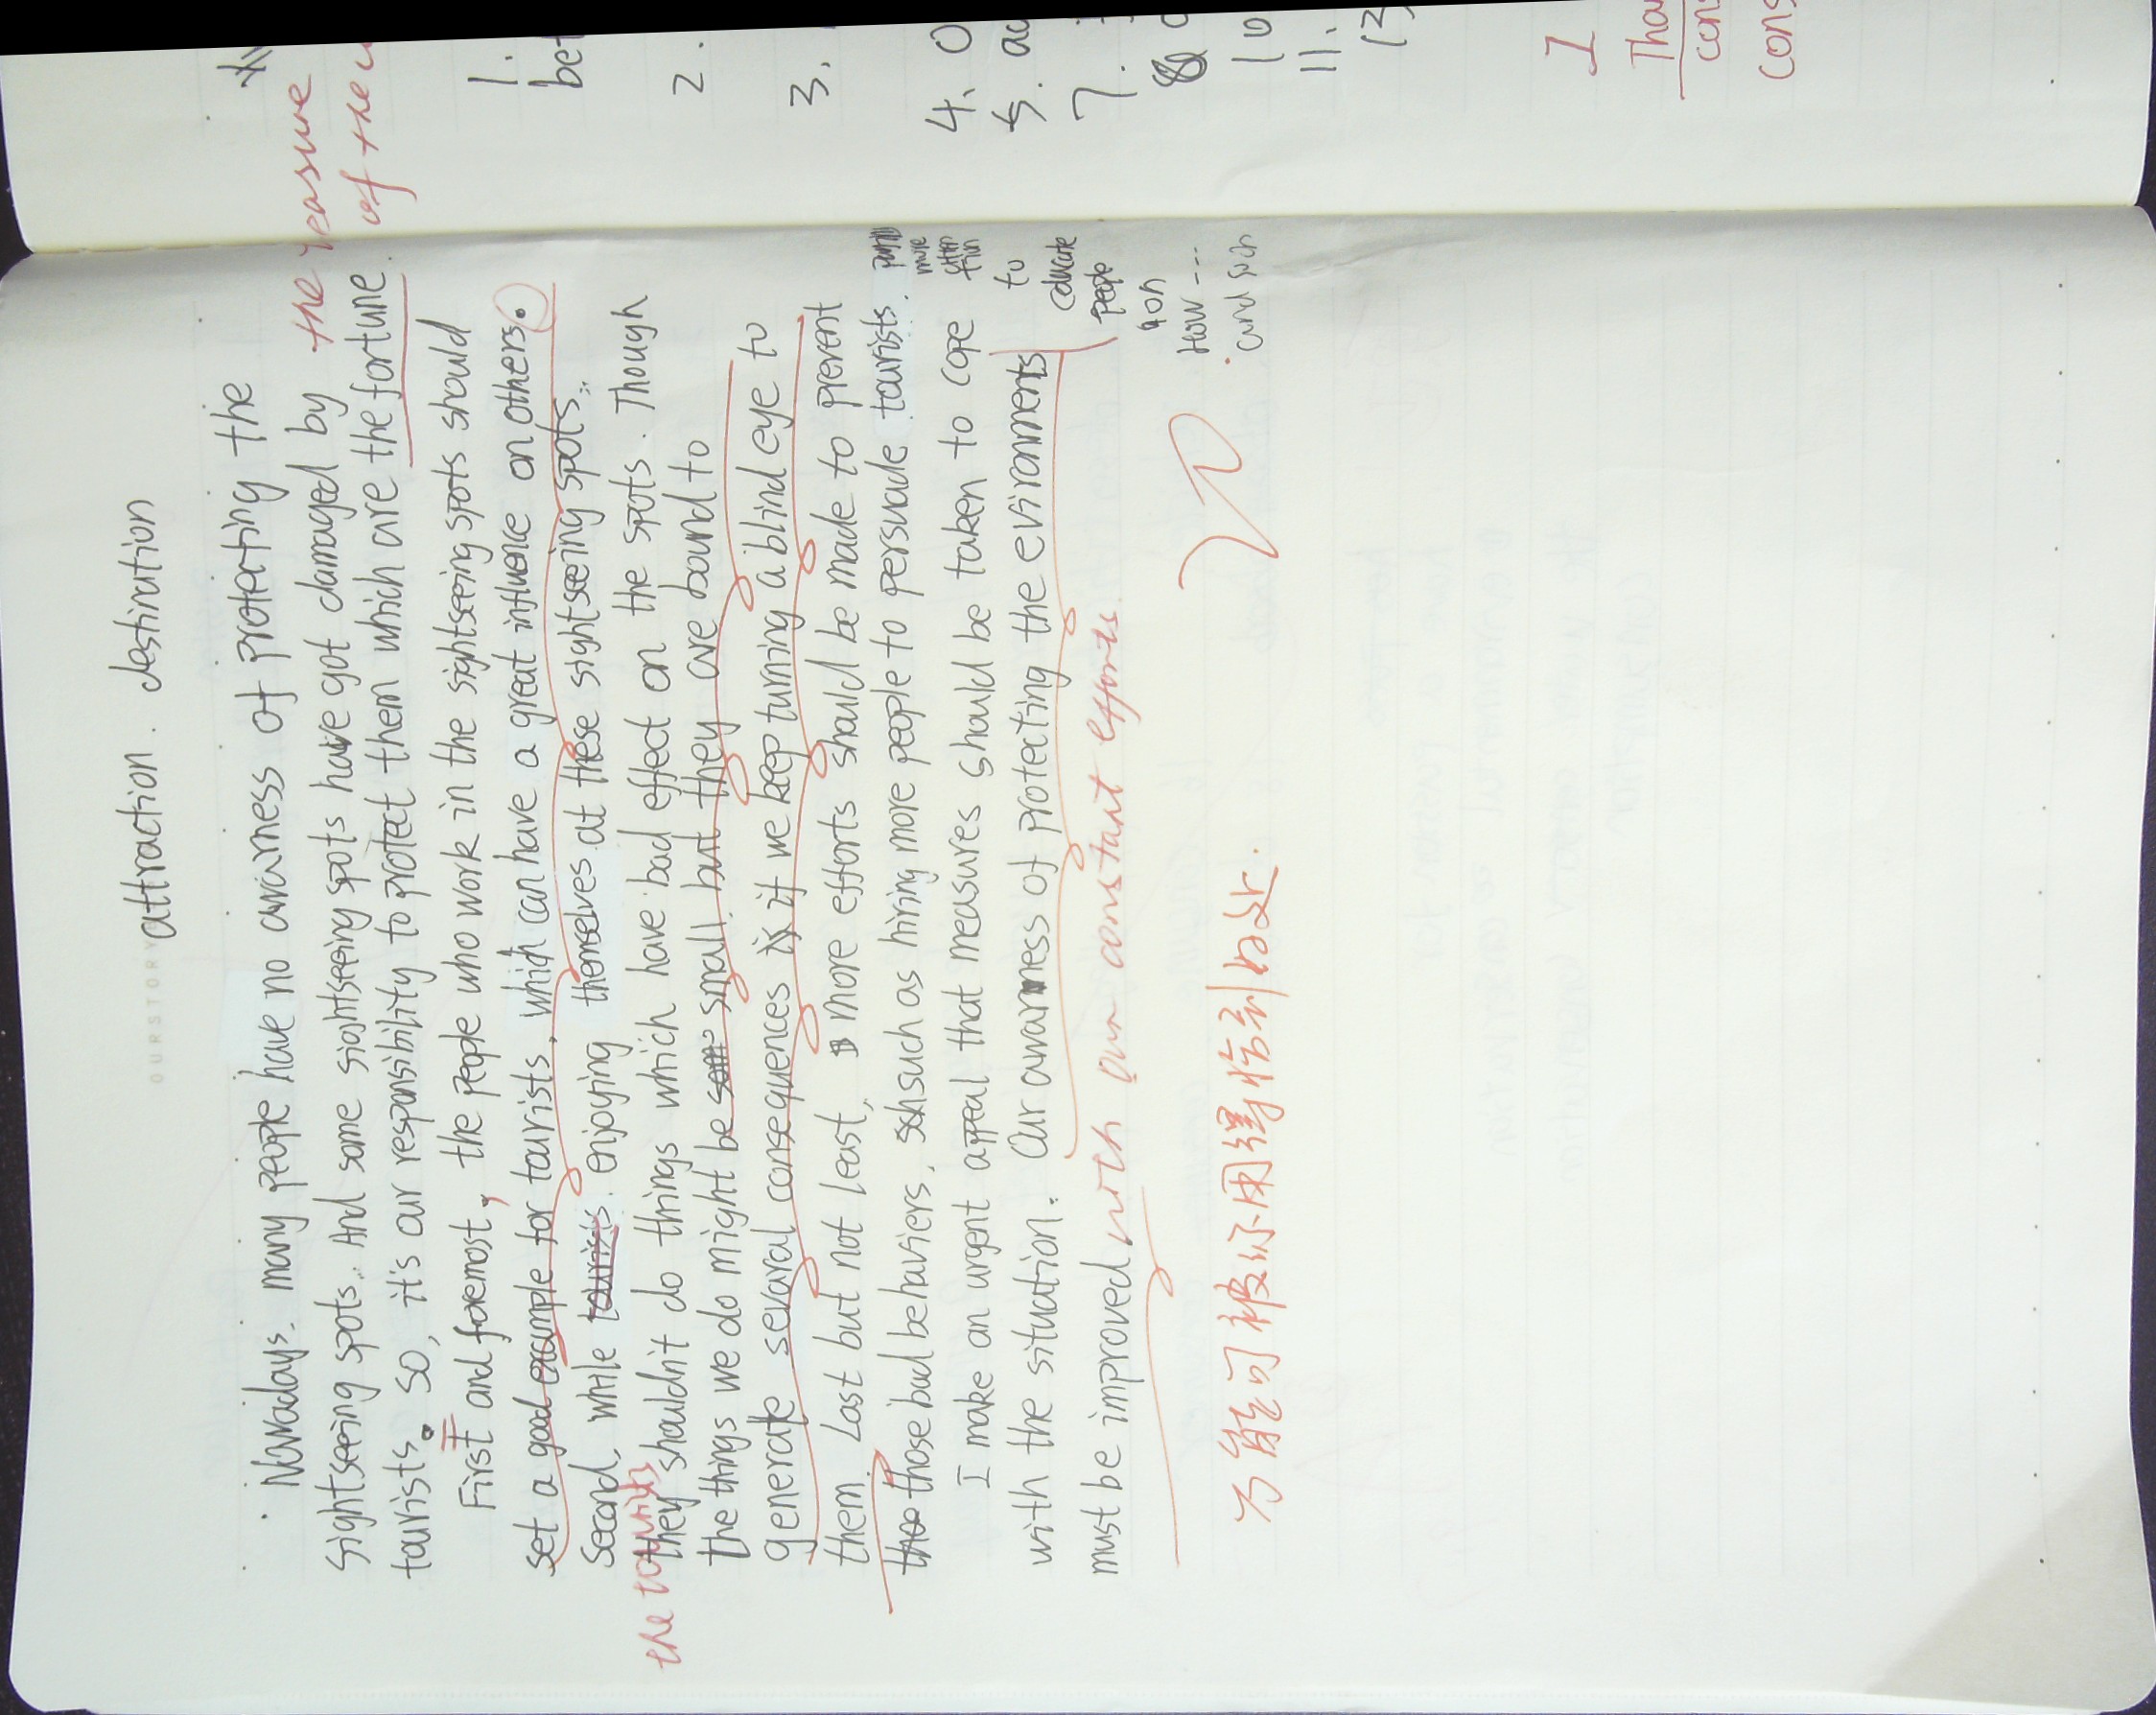 OURSTORY
attraction. destination
Nowadays. many people have no awarness of protecting the
sightseeing spots. And some sightseeing spots have got damaged by
tourists. So, it's our responsibility to protect them which are the fortune.
the reasure
of the
First and foremost, the people who work in the sightseeing spots should
set a good example for tourists, which can have a great influence on others.
Second, while tourists enjoying themselves at these sightseeing spots.
the tourists
they shouldn't do things which have bad effect on the spots. Though
the things we do might be small. but they are bound to
generate several consequences if we keep turning a blind eye to
them. Last but not least, more efforts should be made to prevent
those bad behaviers, such as hiring more people to persuade tourists.
more
to
educate
people
on
how ---
and such
I make an urgent appeal that measures should be taken to cope
with the situation. Our awarness of protecting the evironments
must be improved with our constant efforts.
万能句被你用得恰到好处.
1.
bet
2.
3.
4. O
5. ac
7.
8
10
11.
13,
I
Tha
cons
cons